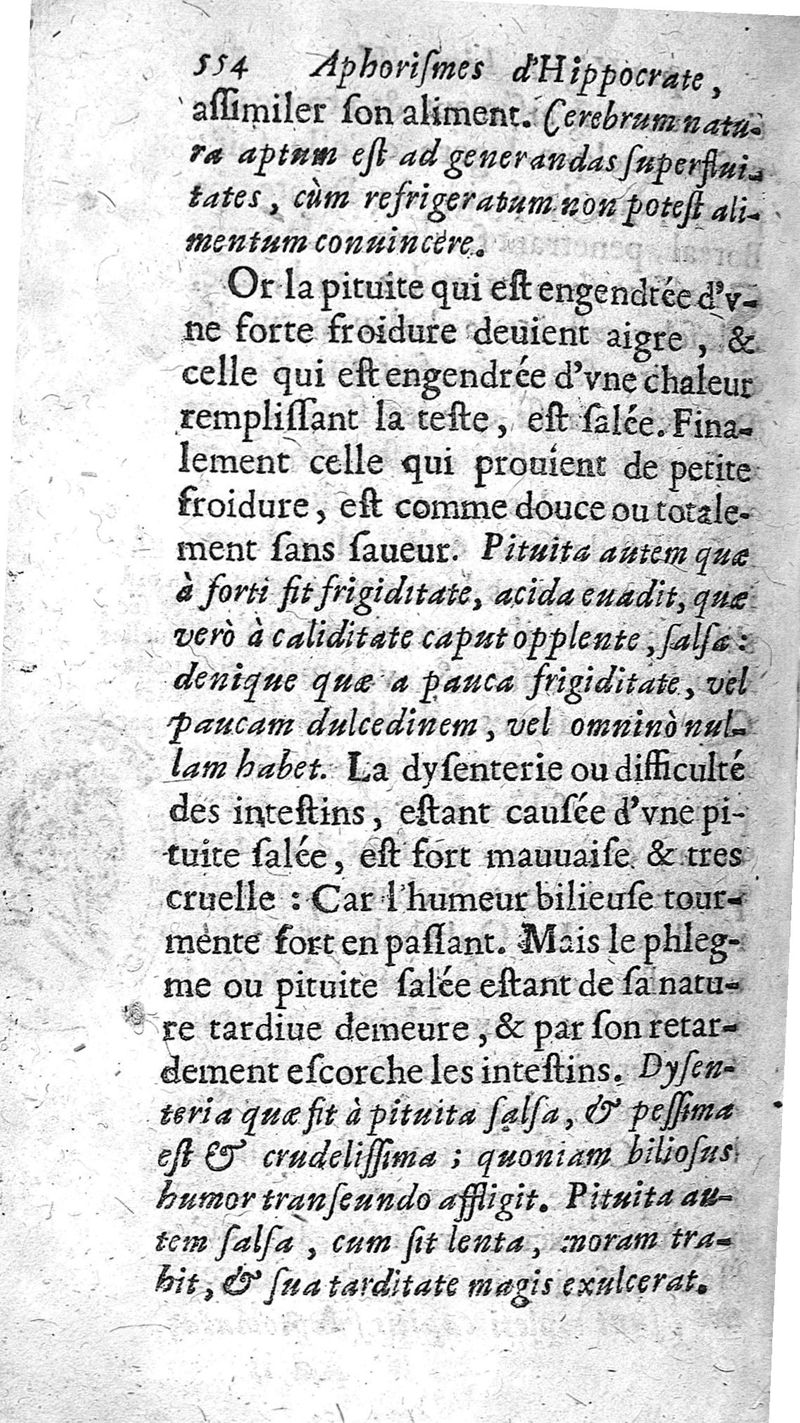 554 Aphoriſmes d'Hippocrate,
aſſimiler ſon aliment. Cerebrum natu-
ra aptum eſt ad generandas ſuperflui-
tates, cùm refrigeratum non poteſt ali-
mentum conuincere.
Or la pituite qui eſt engendrée d'v-
ne forte froidure deuient aigre, &
celle qui eſt engendrée d'vne chaleur
rempliſſant la teſte, eſt ſalée. Fina-
lement celle qui prouient de petite
froidure, eſt comme douce ou totale-
ment ſans ſaueur. Pituita autem quæ
à forti fit frigiditate, acida euadit, quæ
verò à caliditate caput opplente, ſalſa:
denique quæ a pauca frigiditate, vel
paucam dulcedinem, vel omninò nul-
lam habet. La dyſenterie ou difficulté
des inteſtins, eſtant cauſée d'vne pi-
tuite ſalée, eſt fort mauuaiſe & tres
cruelle : Car l'humeur bilieuſe tour-
mente fort en paſſant. Mais le phleg-
me ou pituite ſalée eſtant de ſa natu-
re tardiue demeure, & par ſon retar-
dement eſcorche les inteſtins. Dyſen-
teria quæ fit à pituita ſalſa, & peſſima
eſt & crudeliſſima ; quoniam bilioſus
humor tranſeundo affligit. Pituita au-
tem ſalſa, cum ſit lenta, moram tra-
hit, & ſua tarditate magis exulcerat.